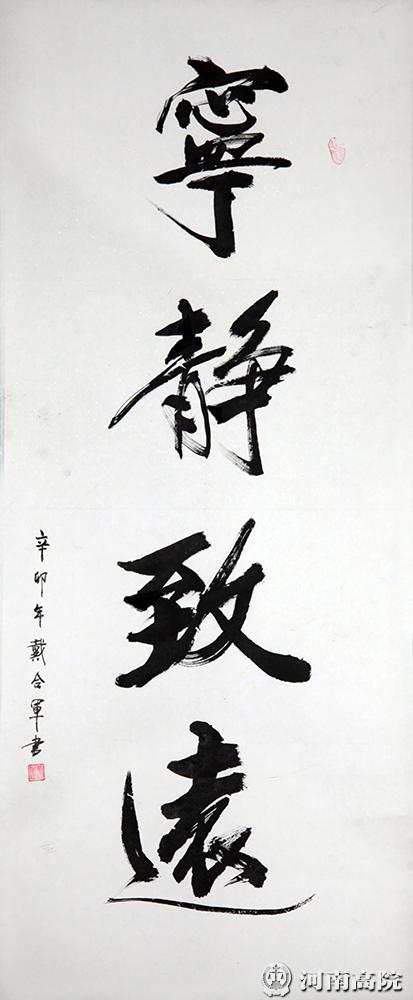 寧静致遠
辛卯年戴合軍书
河南高院